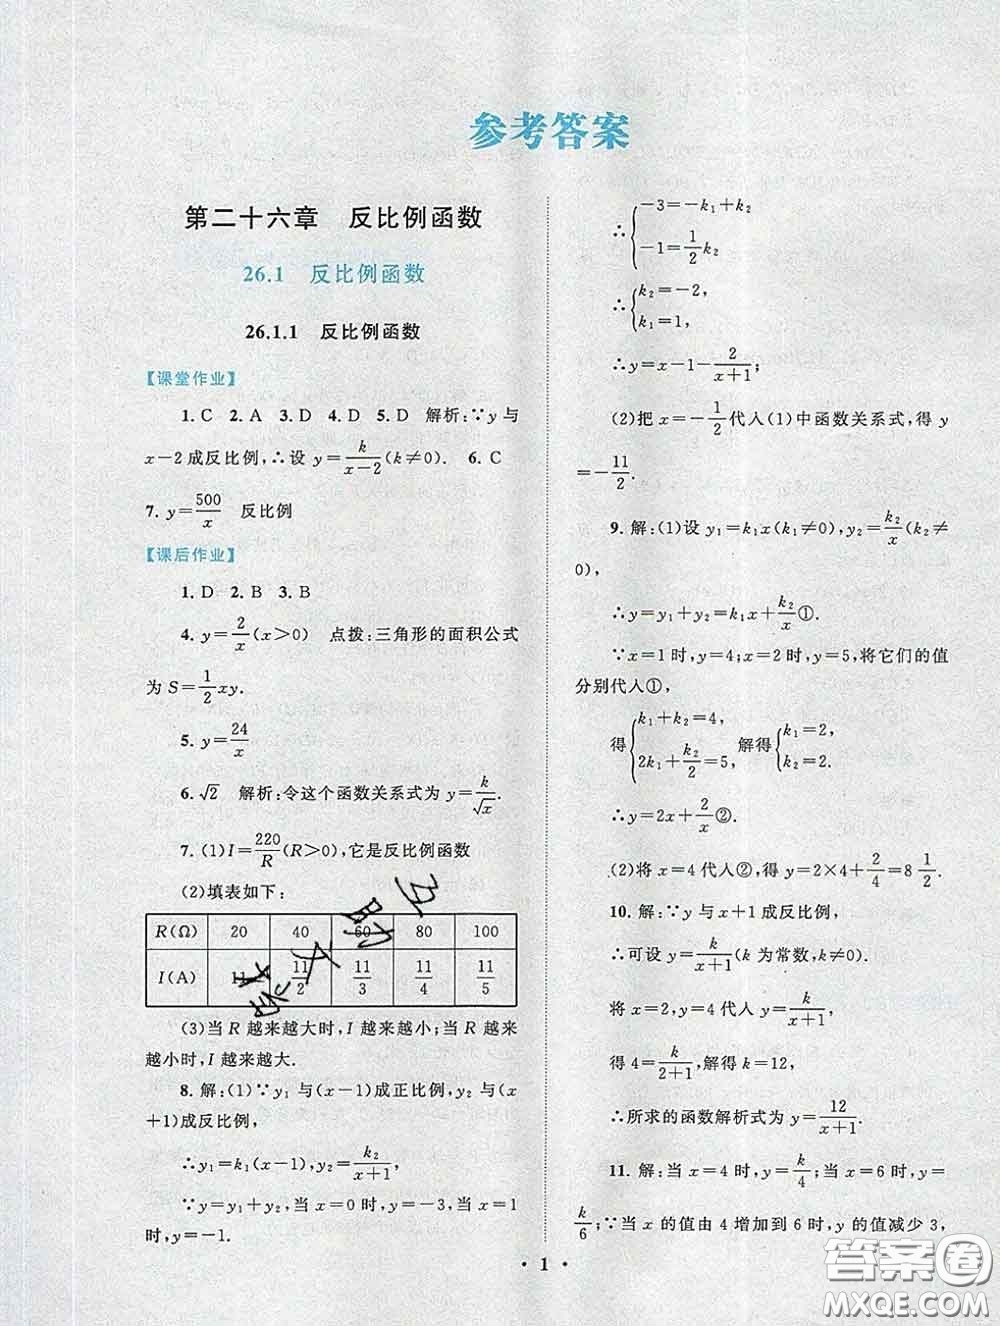 参考答案
第二十六章　反比例函数
26.1　反比例函数
26.1.1　反比例函数
【课堂作业】
1. C　2. A　3. D　4. D　5. D　解析:∵y 与
x−2 成反比例,∴设 y=k/(x−2)(k≠0).　6. C
7. y=500/x　反比例
【课后作业】
1. D　2. B　3. B
4. y=2/x(x>0)　点拨:三角形的面积公式
为 S=1/2xy.
5. y=24/x
6. √2　解析:令这个函数关系式为 y=k/√x.
7. (1)I=220/R(R>0),它是反比例函数
(2)填表如下:
R(Ω)　20　40　60　80　100
I(A)　11　11/2　11/3　11/4　11/5
(3)当 R 越来越大时,I 越来越小;当 R 越来
越小时,I 越来越大.
8. 解:(1)∵y₁ 与(x−1)成正比例,y₂ 与(x
+1)成反比例,
∴y₁=k₁(x−1),y₂=k₂/(x+1),
∵y=y₁+y₂,当 x=0 时,y=−3,当 x=1
时,y=−1.
∴{−3=−k₁+k₂
−1=1/2k₂
∴{k₂=−2,
k₁=1,
∴y=x−1−2/(x+1);
(2)把 x=−1/2代入(1)中函数关系式,得 y
=−11/2.
9. 解:(1)设 y₁=k₁x(k₁≠0),y₂=k₂/x(k₂≠
0),
∴y=y₁+y₂=k₁x+k₂/x①.
∵x=1 时,y=4;x=2 时,y=5,将它们的值
分别代入①,
得{k₁+k₂=4,　2k₁+k₂/2=5,　解得{k₁=2,　k₂=2.
∴y=2x+2/x②.
(2)将 x=4 代入②,得 y=2×4+2/4=8 1/2.
10. 解:∵y 与 x+1 成反比例,
∴可设 y=k/(x+1)(k 为常数,k≠0).
将 x=2,y=4 代入 y=k/(x+1),
得 4=k/(2+1),解得 k=12,
∴所求的函数解析式为 y=12/(x+1).
11. 解:当 x=4 时,y=k/4;当 x=6 时,y=
k/6;∵当 x 的值由 4 增加到 6 时,y 的值减少 3,
• 1 •
答案圈
MXQE.COM